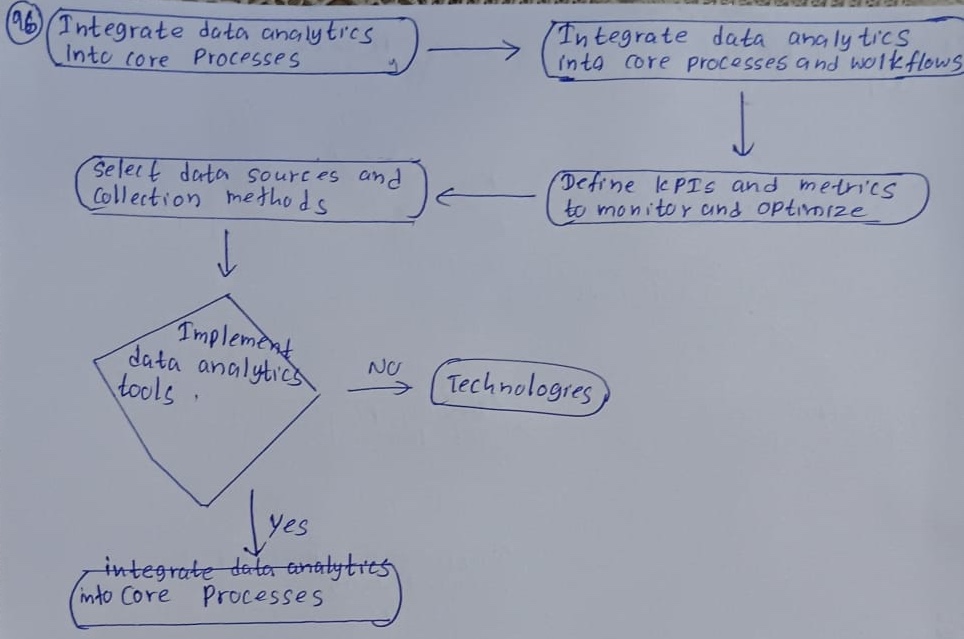 96
Integrate data analytics
Into core Processes
Integrate data analytics
into core processes and wolkflows
Define KPIs and metrics
to monitor and optimize
Select data sources and
Collection methods
Implement
data analytics
tools.
NO
Technologies
Yes
integrate data analytics
into Core Processes